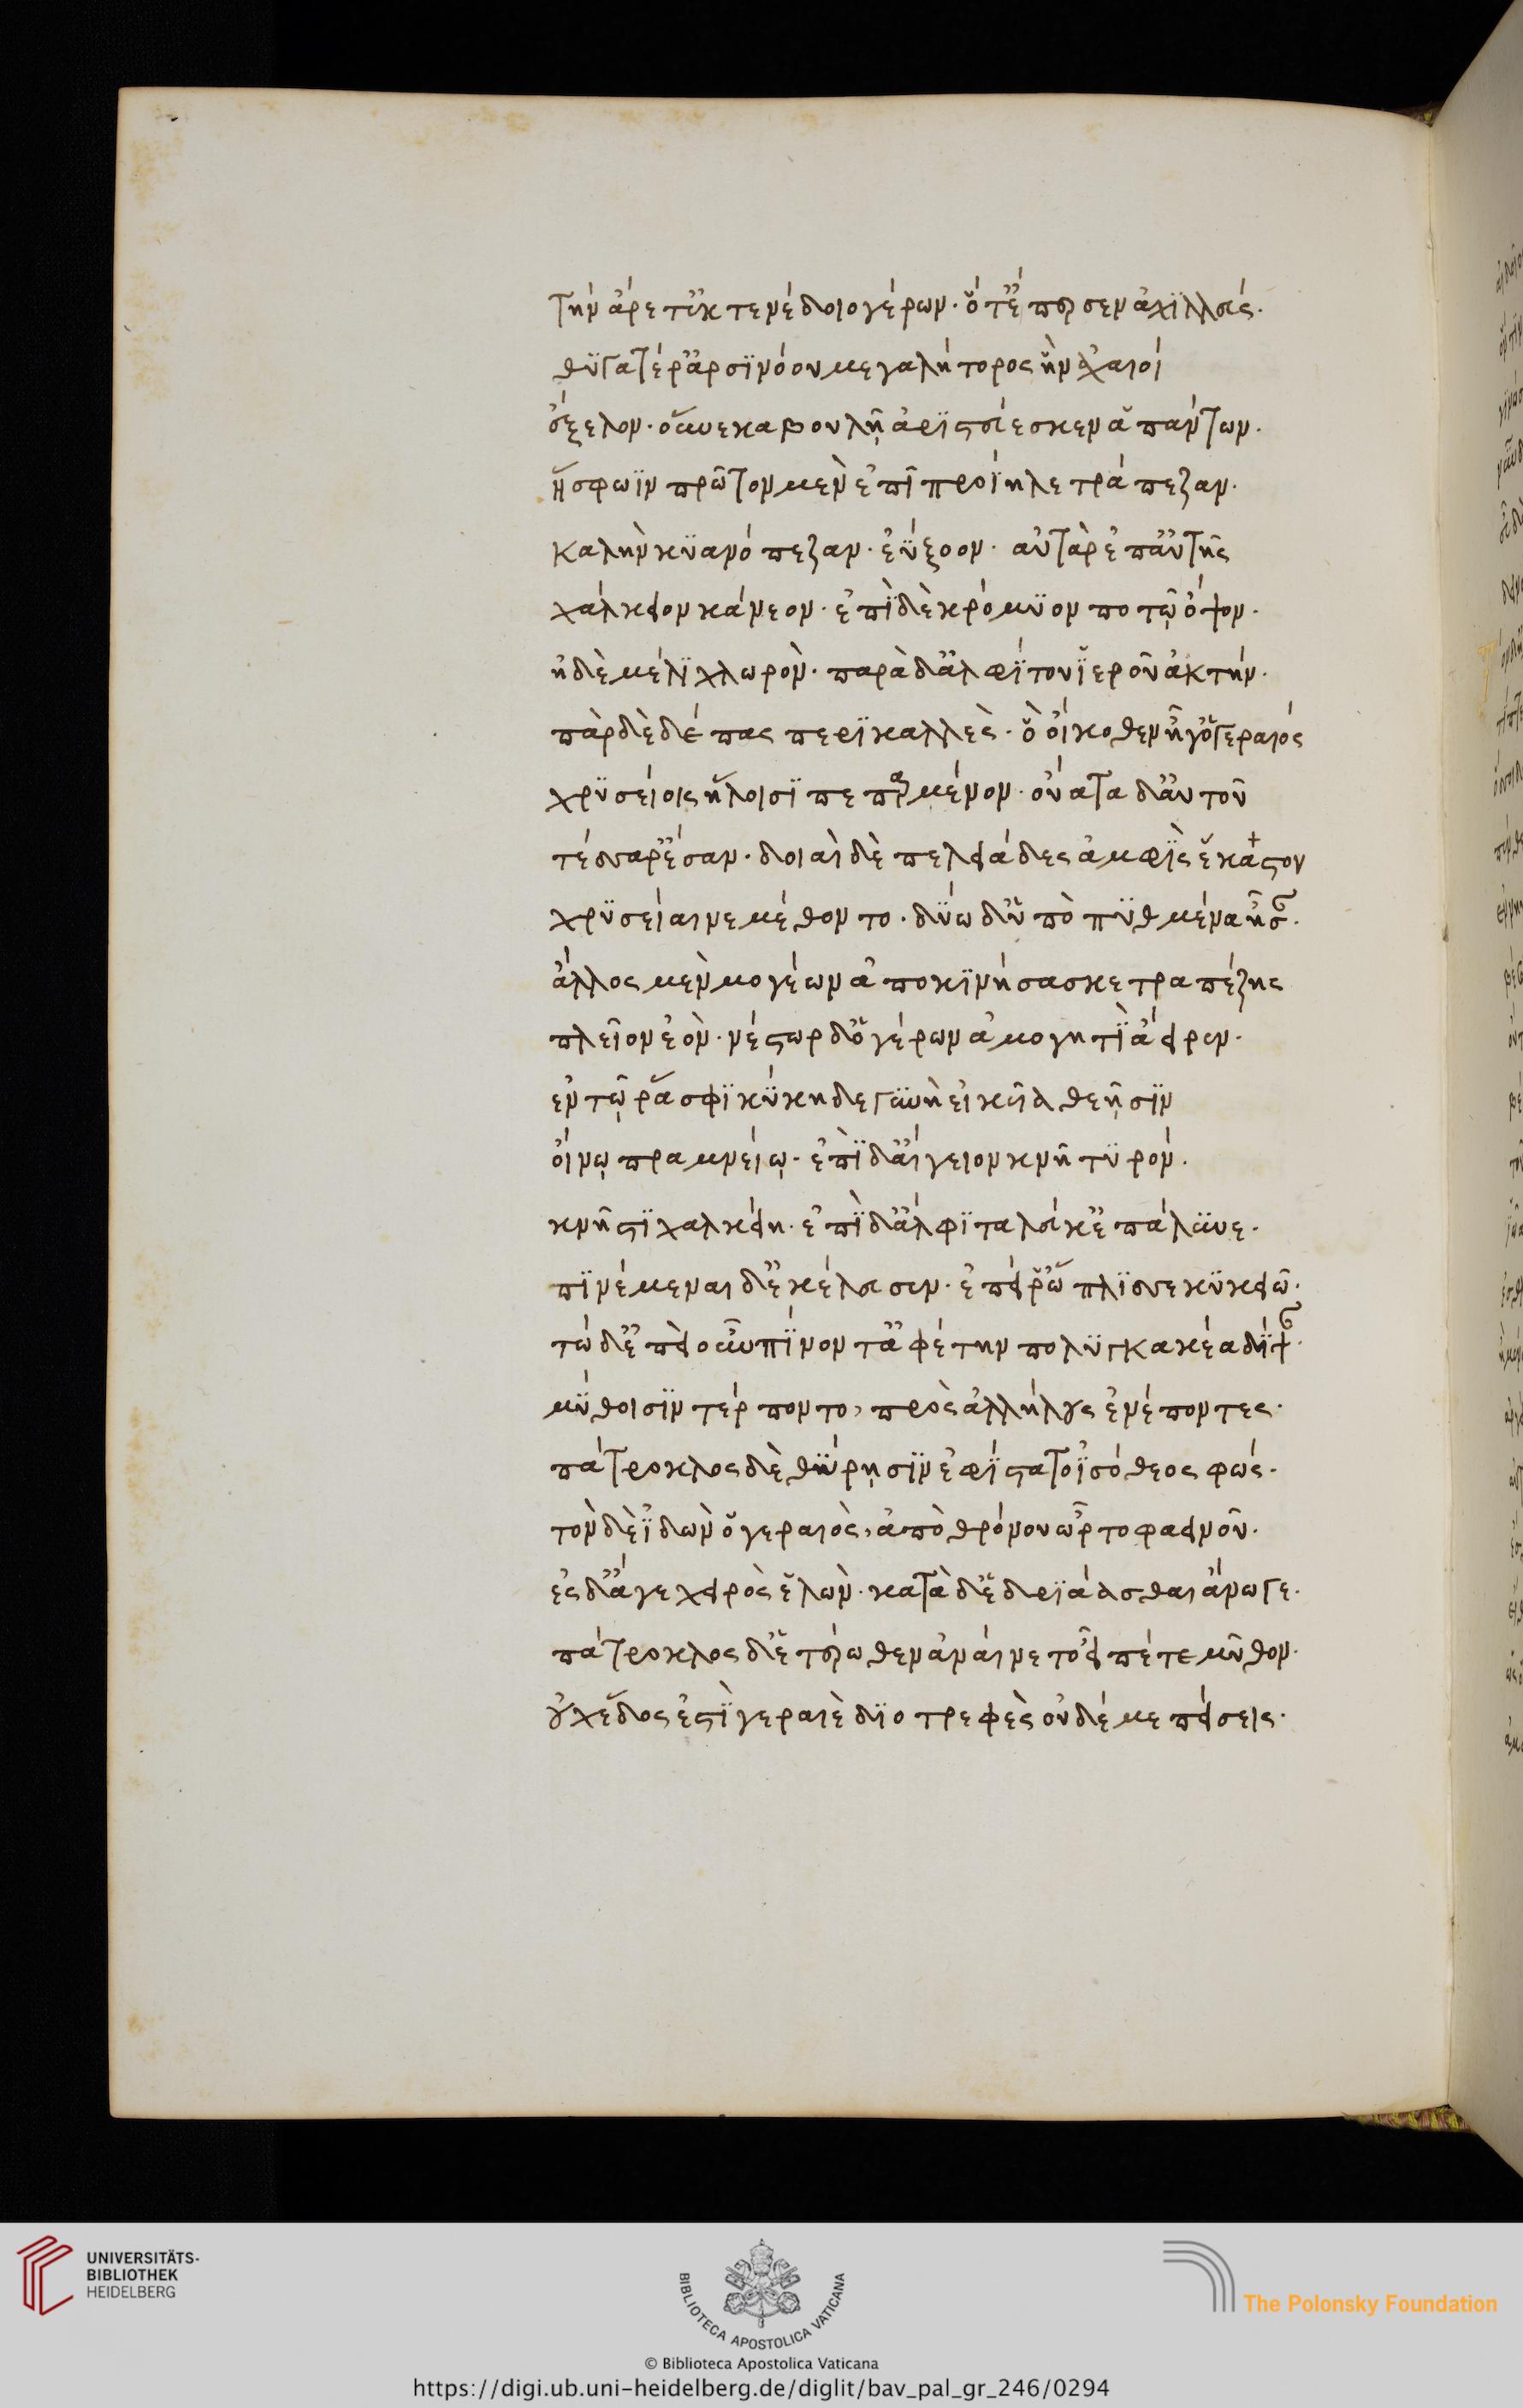 τὴν ἄρετ' ἐκ τενέδοιο γέρων· ὅτ' ἔπερσεν ἀχϊλλεύς·
θϋγατέρ' ἀρσϊνόου μεγαλήτορος ἥν ἀχαιοὶ
ἔξελον· οὕνεκα βουλῇ ἀρϊστεύεσκεν ἁπάντων·
ἥ σφωϊν πρῶτον μὲν ἐπιπροΐηλε τράπεζαν·
καλὴν κϋανόπεζαν· ἐΰξοον· αὐτὰρ ἐπ' αὐτῆς
χάλκειον κάνεον· ἐπὶ δὲ κρόμϋον ποτῷ ὄψον·
ἠδὲ μέλϊ χλωρὸν· παρὰ δ' ἀλφίτου ἱεροῦ ἀκτήν·
πὰρ δὲ δέπας περϊκαλλὲς· ὃ οἴκοθεν ἦγ' ὁ γεραιός
χρϋσείοις ἥλοισϊ πεπαρμένον· οὔατα δ' αὐτοῦ
τέσσαρ' ἔσαν· δοιαὶ δὲ πελειάδες ἀμφὶς ἕκαστον
χρύσειαι νεμέθοντο· δύω δ' ὑπὸ πϋθμένα ἦσαν·
ἄλλος μὲν μογέων ἀποκϊνήσασκε τραπέζης
πλεῖον ἐὸν· νέστωρ δ' ὁ γέρων ἀμογητὶ ἄειρεν·
ἐν τῷ ῥά σφϊ κύκησε γυνὴ εἰκυῖα θεῇσϊν
οἴνῳ πραμνείῳ· ἐπὶ δ' αἴγειον κνῆ τϋρόν·
κνήστϊ χαλκείη· ἐπὶ δ' ἄλφϊτα λευκ' ἐπάλϋνε·
πϊνέμεναι δ' ἐκέλευσεν· ἐπεί ῥ' ὥπλϊσσε κϋκειῶ·
τὼ δ' ἐπεὶ οὖν πΐνοντ' ἀφέτην πολϋκαγκέα δίψαν·
μύθοισϊν τέρποντο, πρὸς ἀλλήλους ἐνέποντες·
πάτροκλος δὲ θύρῃσϊν ἐφΐστατο ἰσόθεος φώς·
τὸν δὲ ἰδὼν ὁ γεραιὸς, ἀπὸ θρόνου ὦρτο φαεινοῦ·
ἐς δ' ἄγε χειρὸς ἑλὼν· κατὰ δ' ἑδρϊάασθαι ἄνωγε·
πάτροκλος δ' ἑτέρωθεν ἀναίνετο εἶπέ τε μῦθον·
οὐχ ἕδος ἐστὶ γεραιὲ δϊοτρεφὲς οὐδέ με πείσεις·
UNIVERSITÄTS-
BIBLIOTHEK
HEIDELBERG
BIBLIOTECA APOSTOLICA VATICANA
The Polonsky Foundation
© Biblioteca Apostolica Vaticana
https://digi.ub.uni-heidelberg.de/diglit/bav_pal_gr_246/0294